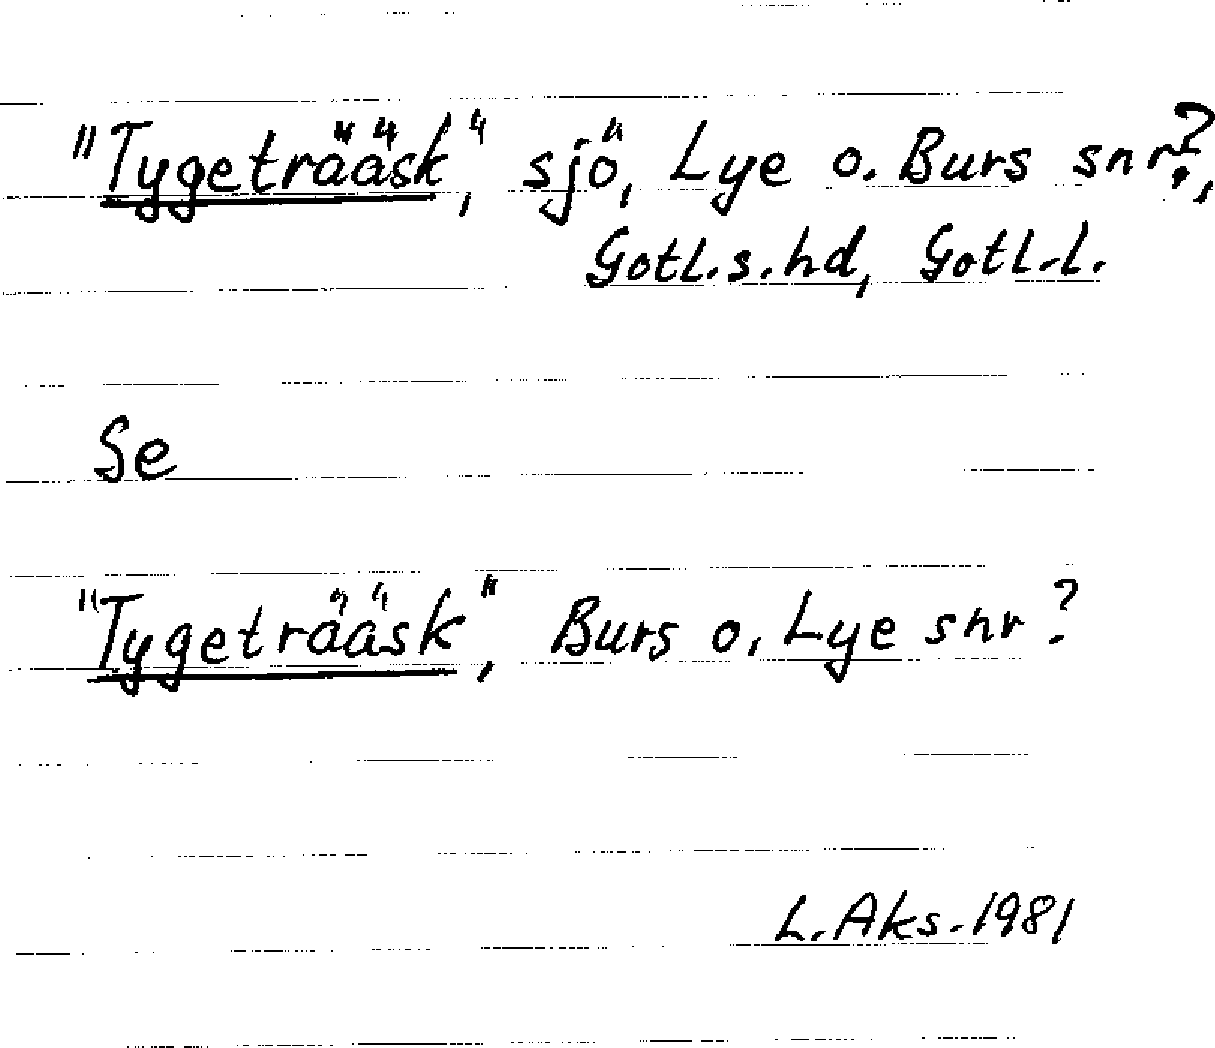 "Tygeträäsk", sjö, Lye o. Burs snr?,
Gotl.s.hd, Gotl.l.
Se
"Tygeträäsk", Burs o. Lye snr?
L.Aks.1981